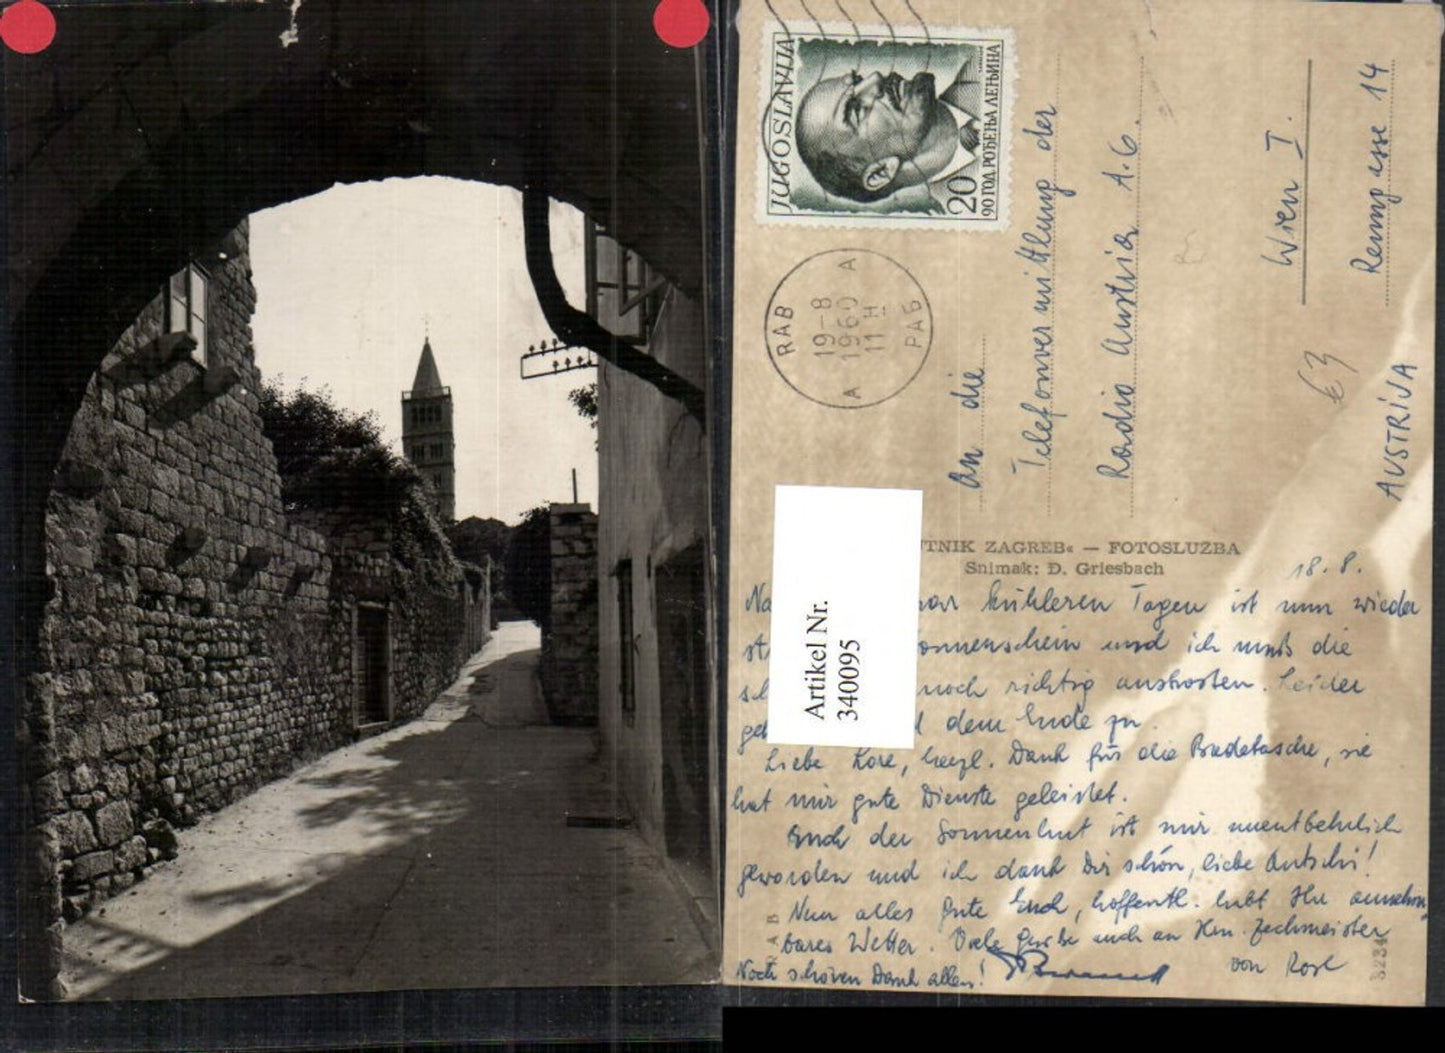 JUGOSLAVIJA
20
90 ГОД. РОЂЕЊА ЛЕЊИНА
RAB
19-8
1960
11 H
A
A
РАБ
An die
Telefonvermittlung der
Radio Austria A.G.
Wien I.
14
AUSTRIJA
€3
TNIK ZAGREB« — FOTOSLUŽBA
Snimak: Đ. Griesbach
Artikel Nr.
340095
18. 8.
Na kühleren Tagen ist nun wieder
st onnenschein und ich muß die
noch richtig auskosten. Leider
geh dem Ende zu.
Liebe Lore, herzl. Dank für die Badetasche, sie
hat mir gute Dienste geleistet.
Auch der Sonnenhut ist mir unentbehrlich
geworden und ich dank Dir schön, liebe
Nun alles gute Euch, hoffentl. habt Ihr
bares Wetter. Viele auch an Hrn. Zechmeister
Noch schönen Dank allen! von Rosl
RAB
3234